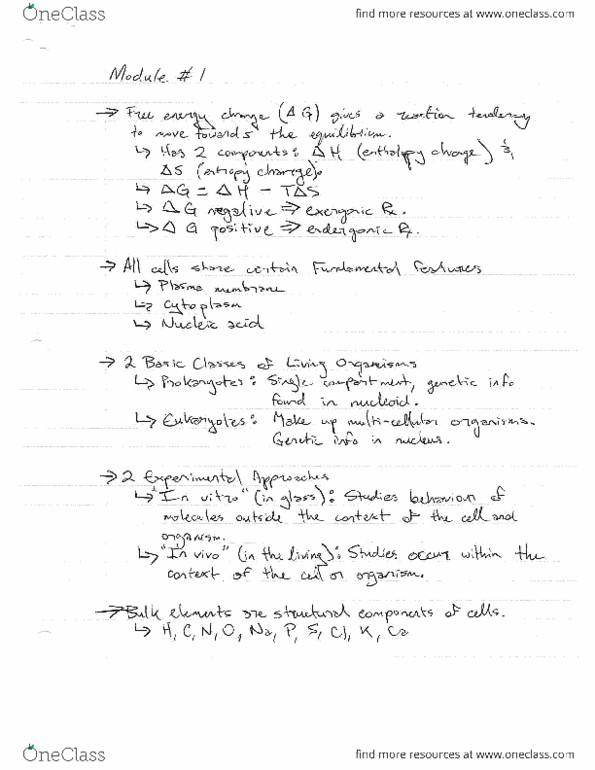 OneClass
find more resources at www.oneclass.com
Module #1
→ Free energy change (ΔG) gives a reaction tendency
to move towards the equilibrium.
↳ Has 2 components: ΔH (enthalpy change) &
ΔS (entropy change).
↳ ΔG = ΔH - TΔS
↳ ΔG negative ⇒ exergonic Rx.
↳ ΔG positive ⇒ endergonic Rx.
→ All cells share certain Fundamental Features
↳ Plasma membrane
↳ Cytoplasm
↳ Nucleic acid
→ 2 Basic Classes of Living Organisms
↳ Prokaryotes: Single compartment, genetic info
found in nucleoid.
↳ Eukaryotes: Make up multi-cellular organisms.
Genetic info in nucleus.
→ 2 Experimental Approaches
↳ "In vitro" (in glass): Studies behaviour of
molecules outside the context of the cell and
organism.
↳ "In vivo" (in the living): Studies occur within the
context of the cell or organism.
→ Bulk elements are structural components of cells.
↳ H, C, N, O, Na, P, S, Cl, K, Ca
OneClass
find more resources at www.oneclass.com